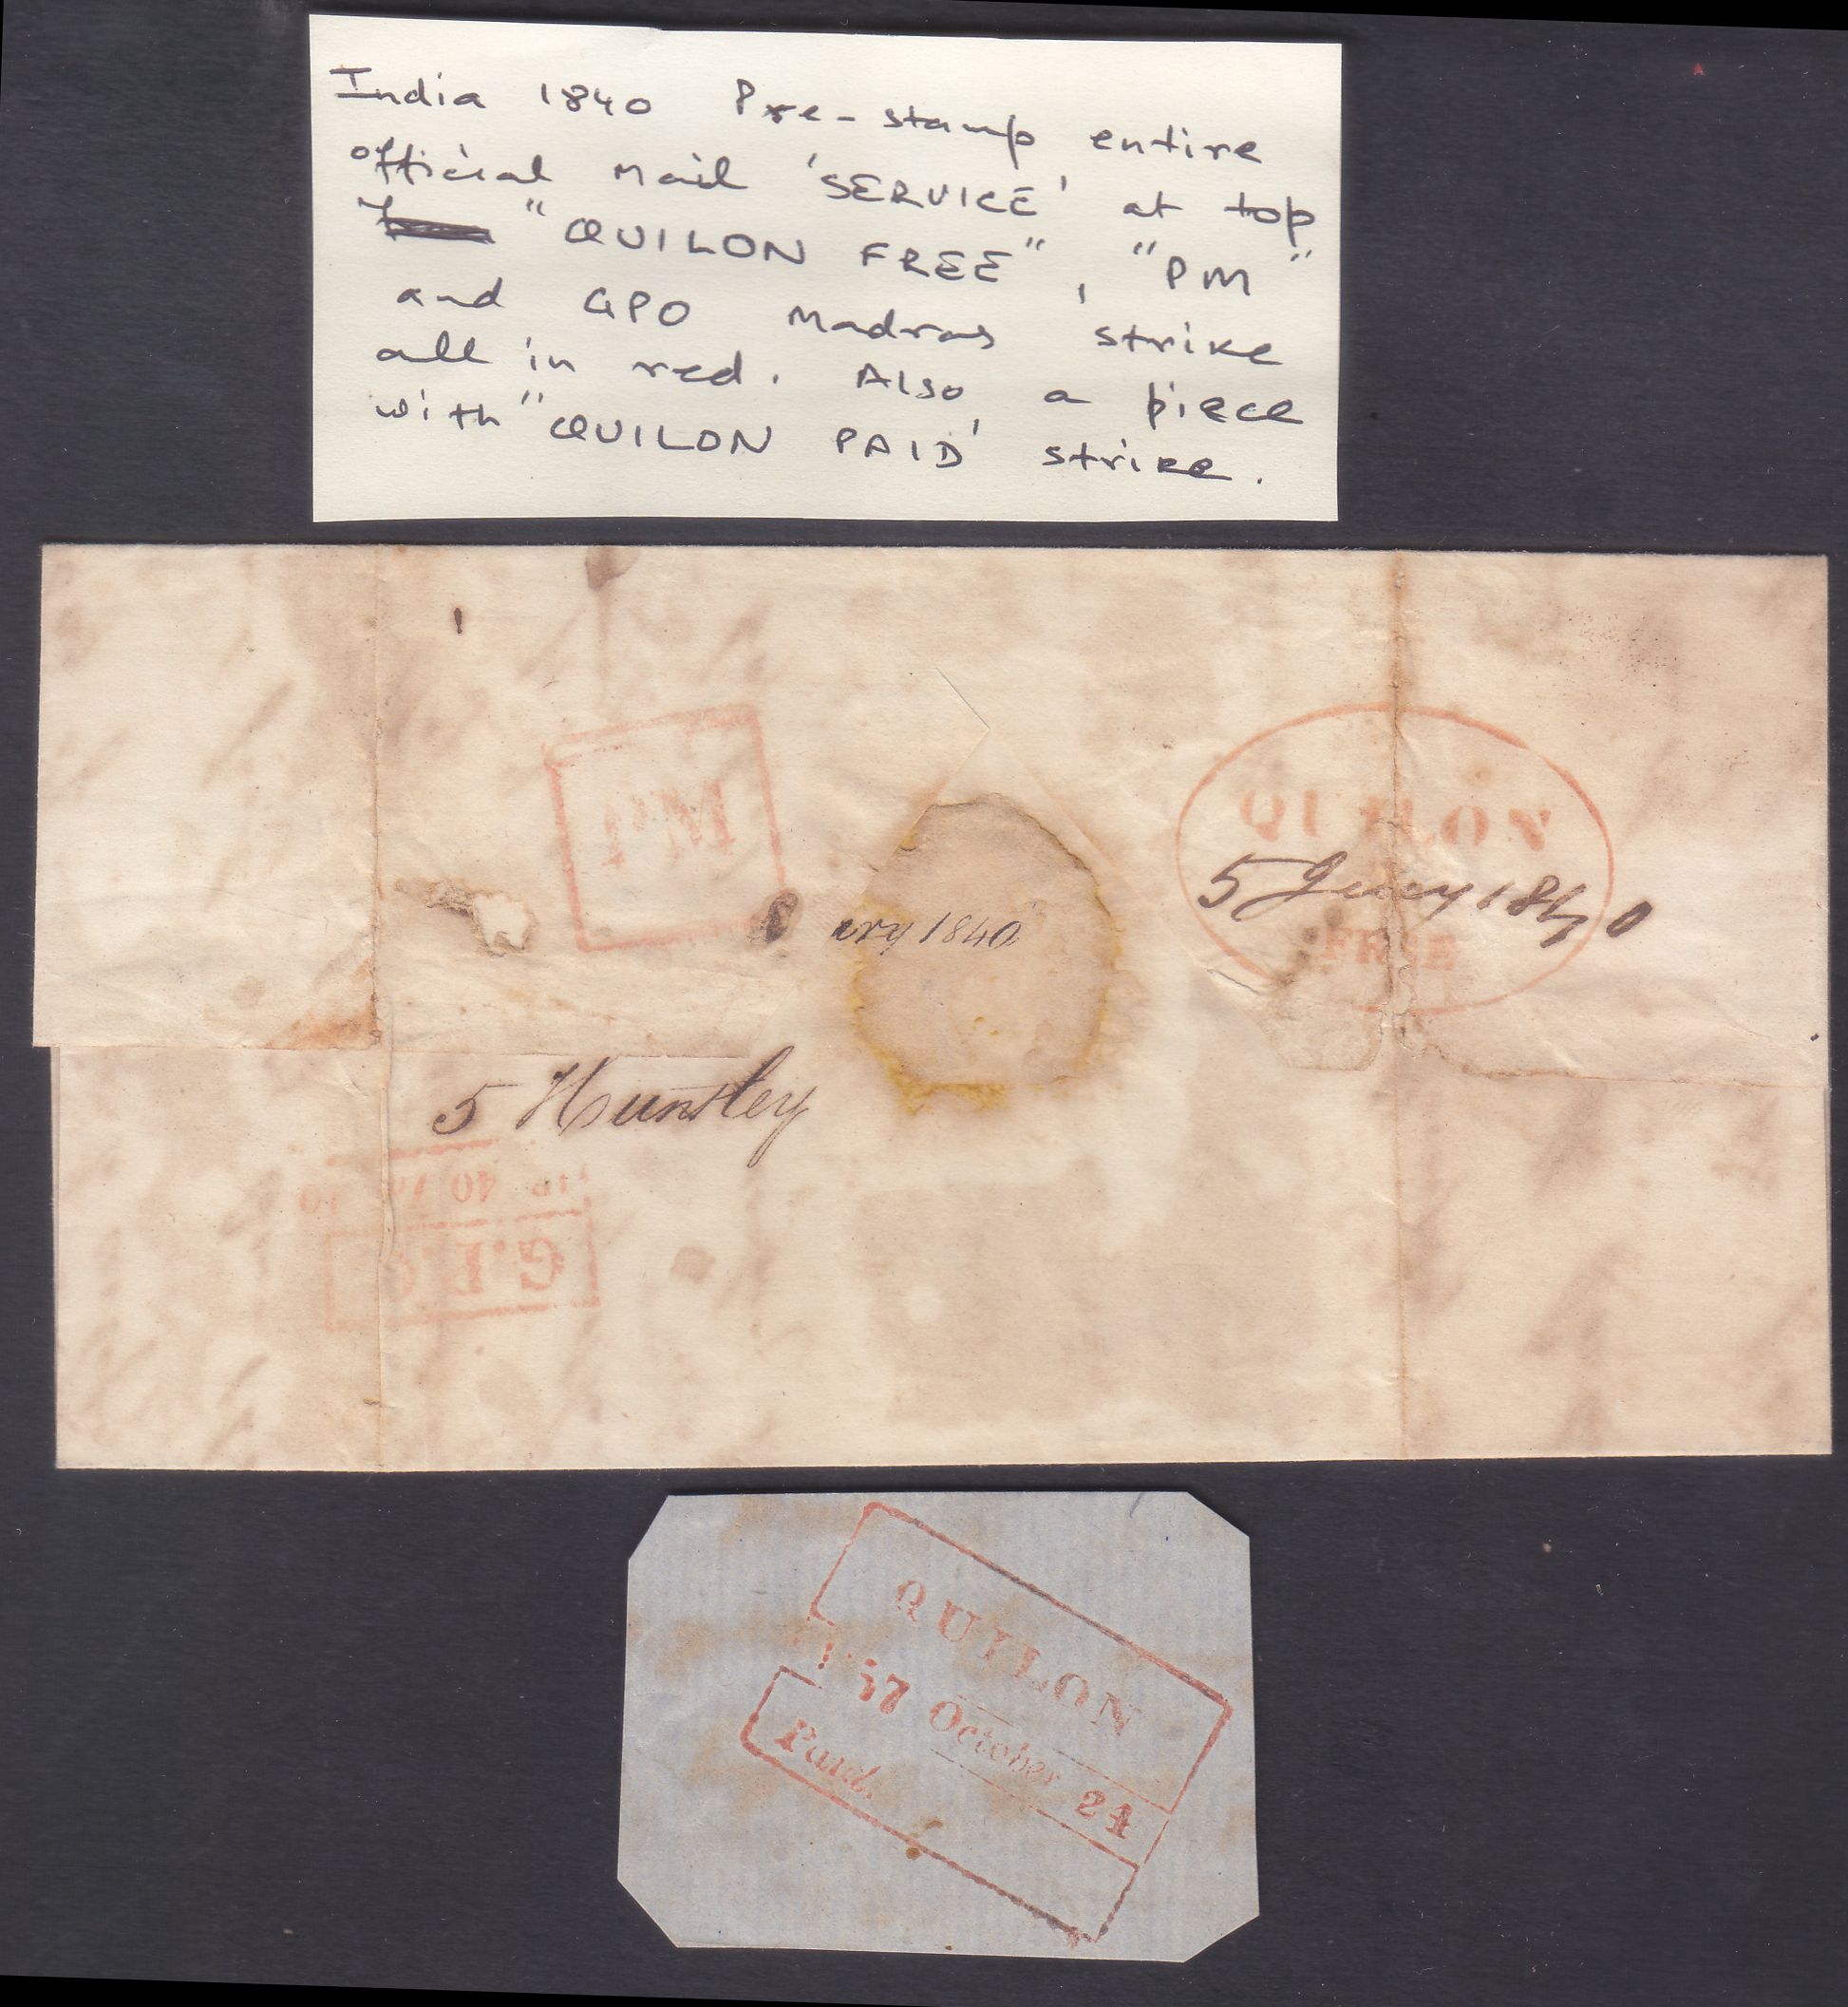 India 1840 Pre-stamp entire
official mail 'SERVICE' at top
"QUILON FREE", "PM"
and GPO Madras strike
all in red. Also, a piece
with "QUILON PAID' strike.
PM
QUILON
5 Jany 1840
FREE
ary 1840
5 Huntley
40
G.P.O
QUILON
57 October 24
Paid.